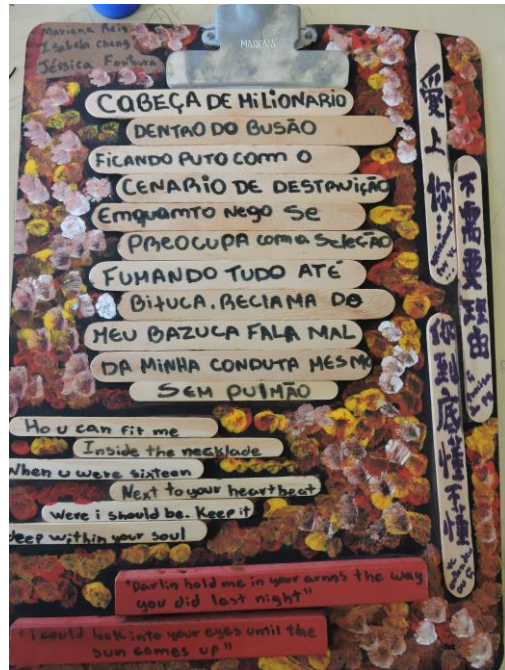 Mariana Reis
Isabela Chang
Jéssica Fontoura
MARCARI
CABEÇA DE MILIONARIO
DENTRO DO BUSÃO
FICANDO PUTO COMM O
CENARIO DE DESTRUIÇÃO
EmQUAMTO NEGO SE
PREOCUPA com a SELEÇÃO
FUMANDO TUDO ATÉ
BITUCA. RECLAMA DO
MEU BAZUCA FALA MAL
DA MINHA CONDUTA MESMO
SEM PULMÃO
愛上你
不需要理由
你到底懂不懂
Ho u can fit me
Inside the necklade
When u were sixteen
Next to your heartbeat
Were i should be. Keep it
deep within your soul
"Darlin hold me in your arms the way
you did last night"
"I could look into your eyes until the
sun comes up"